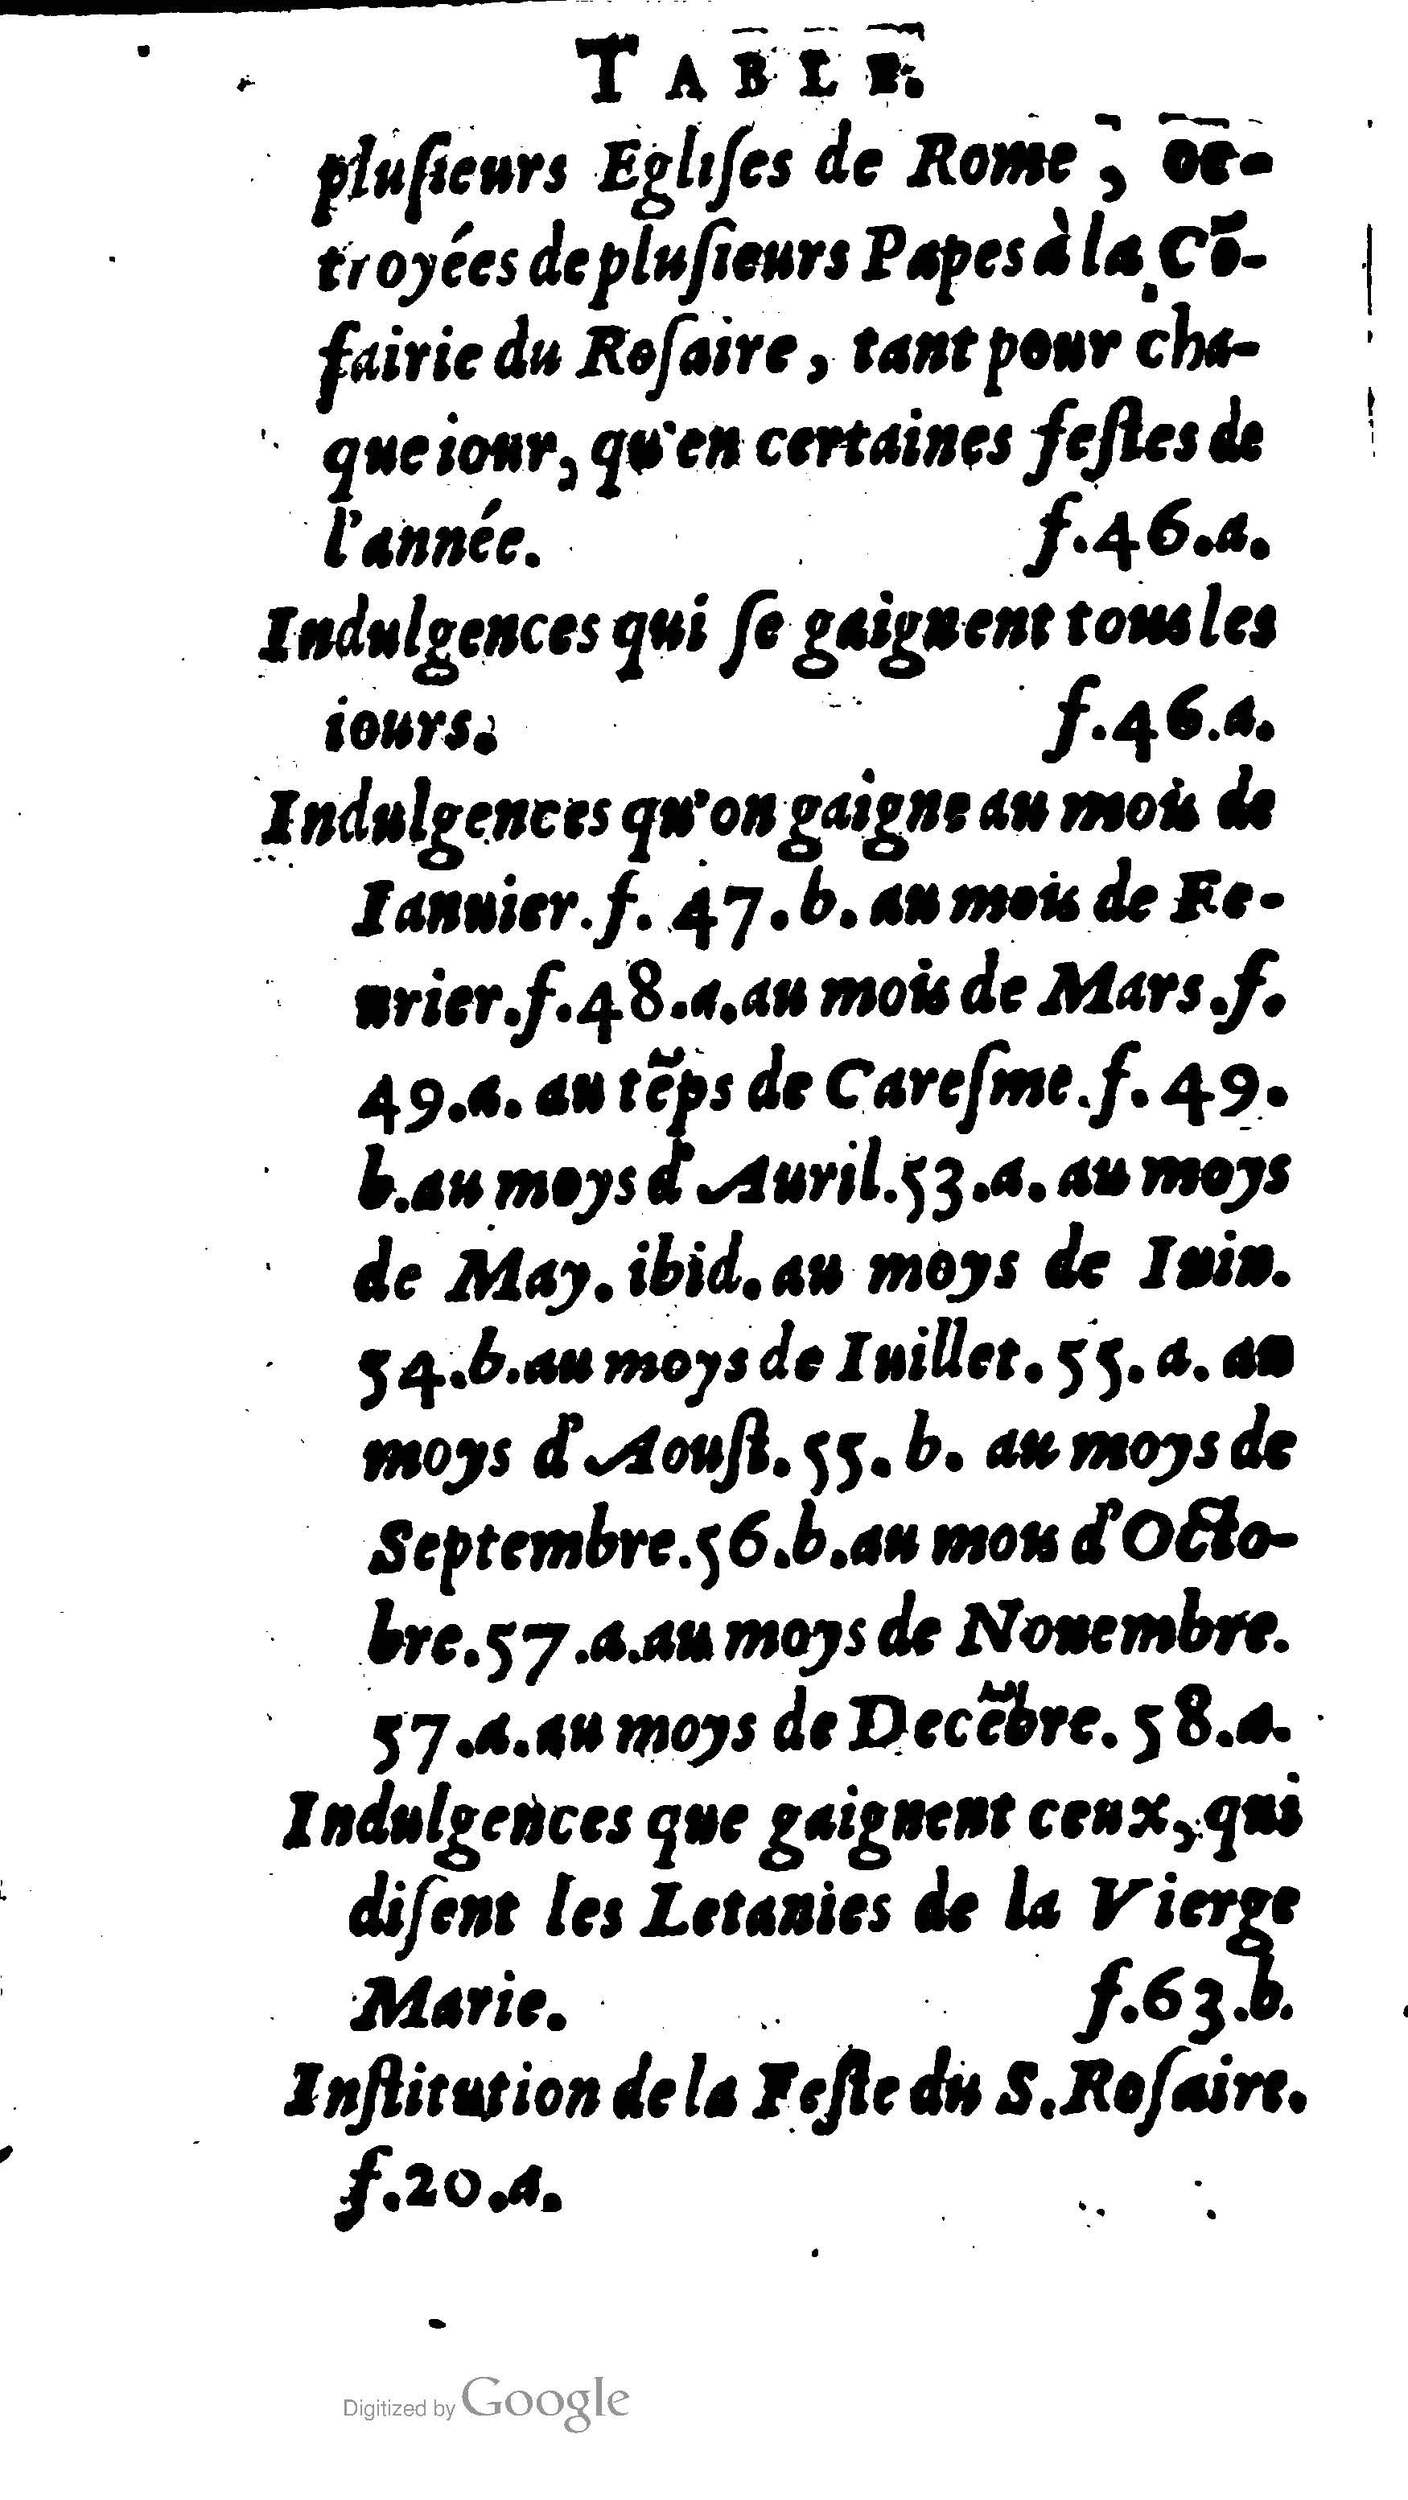 TABLE.
pluſieurs Egliſes de Rome, oc-
troyées de pluſieurs Papes à la Cõ-
fairie du Roſaire, tant pour cha-
que iour, qu'en certaines feſtes de
l'année. f. 46. a.
Indulgences qui ſe gaignent tous les
iours. f. 46. a.
Indulgences qu'on gaigne au mois de
Ianuier. f. 47. b. au mois de Fe-
urier. f. 48. a. au mois de Mars. f.
49. a. au tẽps de Careſme. f. 49.
b. au moys d'Auril. 53. a. au moys
de May. ibid. au moys de Iuin.
54. b. au moys de Iuillet. 55. a. au
moys d'Aouſt. 55. b. au moys de
Septembre. 56. b. au mois d'Octo-
bre. 57. a. au moys de Nouembre.
57. a. au moys de Decẽbre. 58. a.
Indulgences que gaignent ceux, qui
diſent les Letanies de la Vierge
Marie. f. 63. b.
Inſtitution de la Feſte du S. Roſaire.
f. 20. a.
Digitized by Google